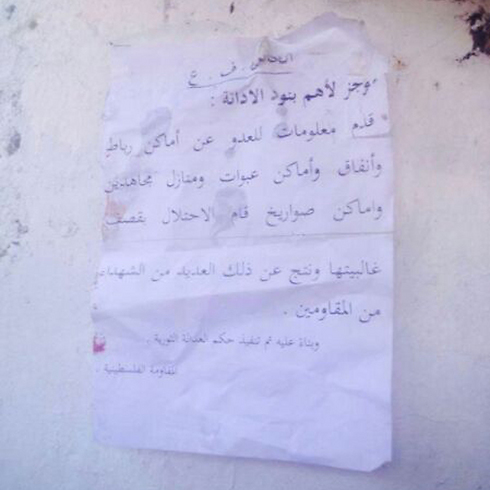 ف . ع
موجز لأهم بنود الادانة :
قدم معلومات للعدو عن أماكن رباط
وأنفاق وأماكن عبوات ومنازل مجاهدين
واماكن صواريخ قام الاحتلال بقصف
غالبيتها ونتج عن ذلك العديد من الشهداء
من المقاومين .
وبناة عليه تم تنفيذ حكم العدالة الثورية .
المقاومة الفلسطينية .